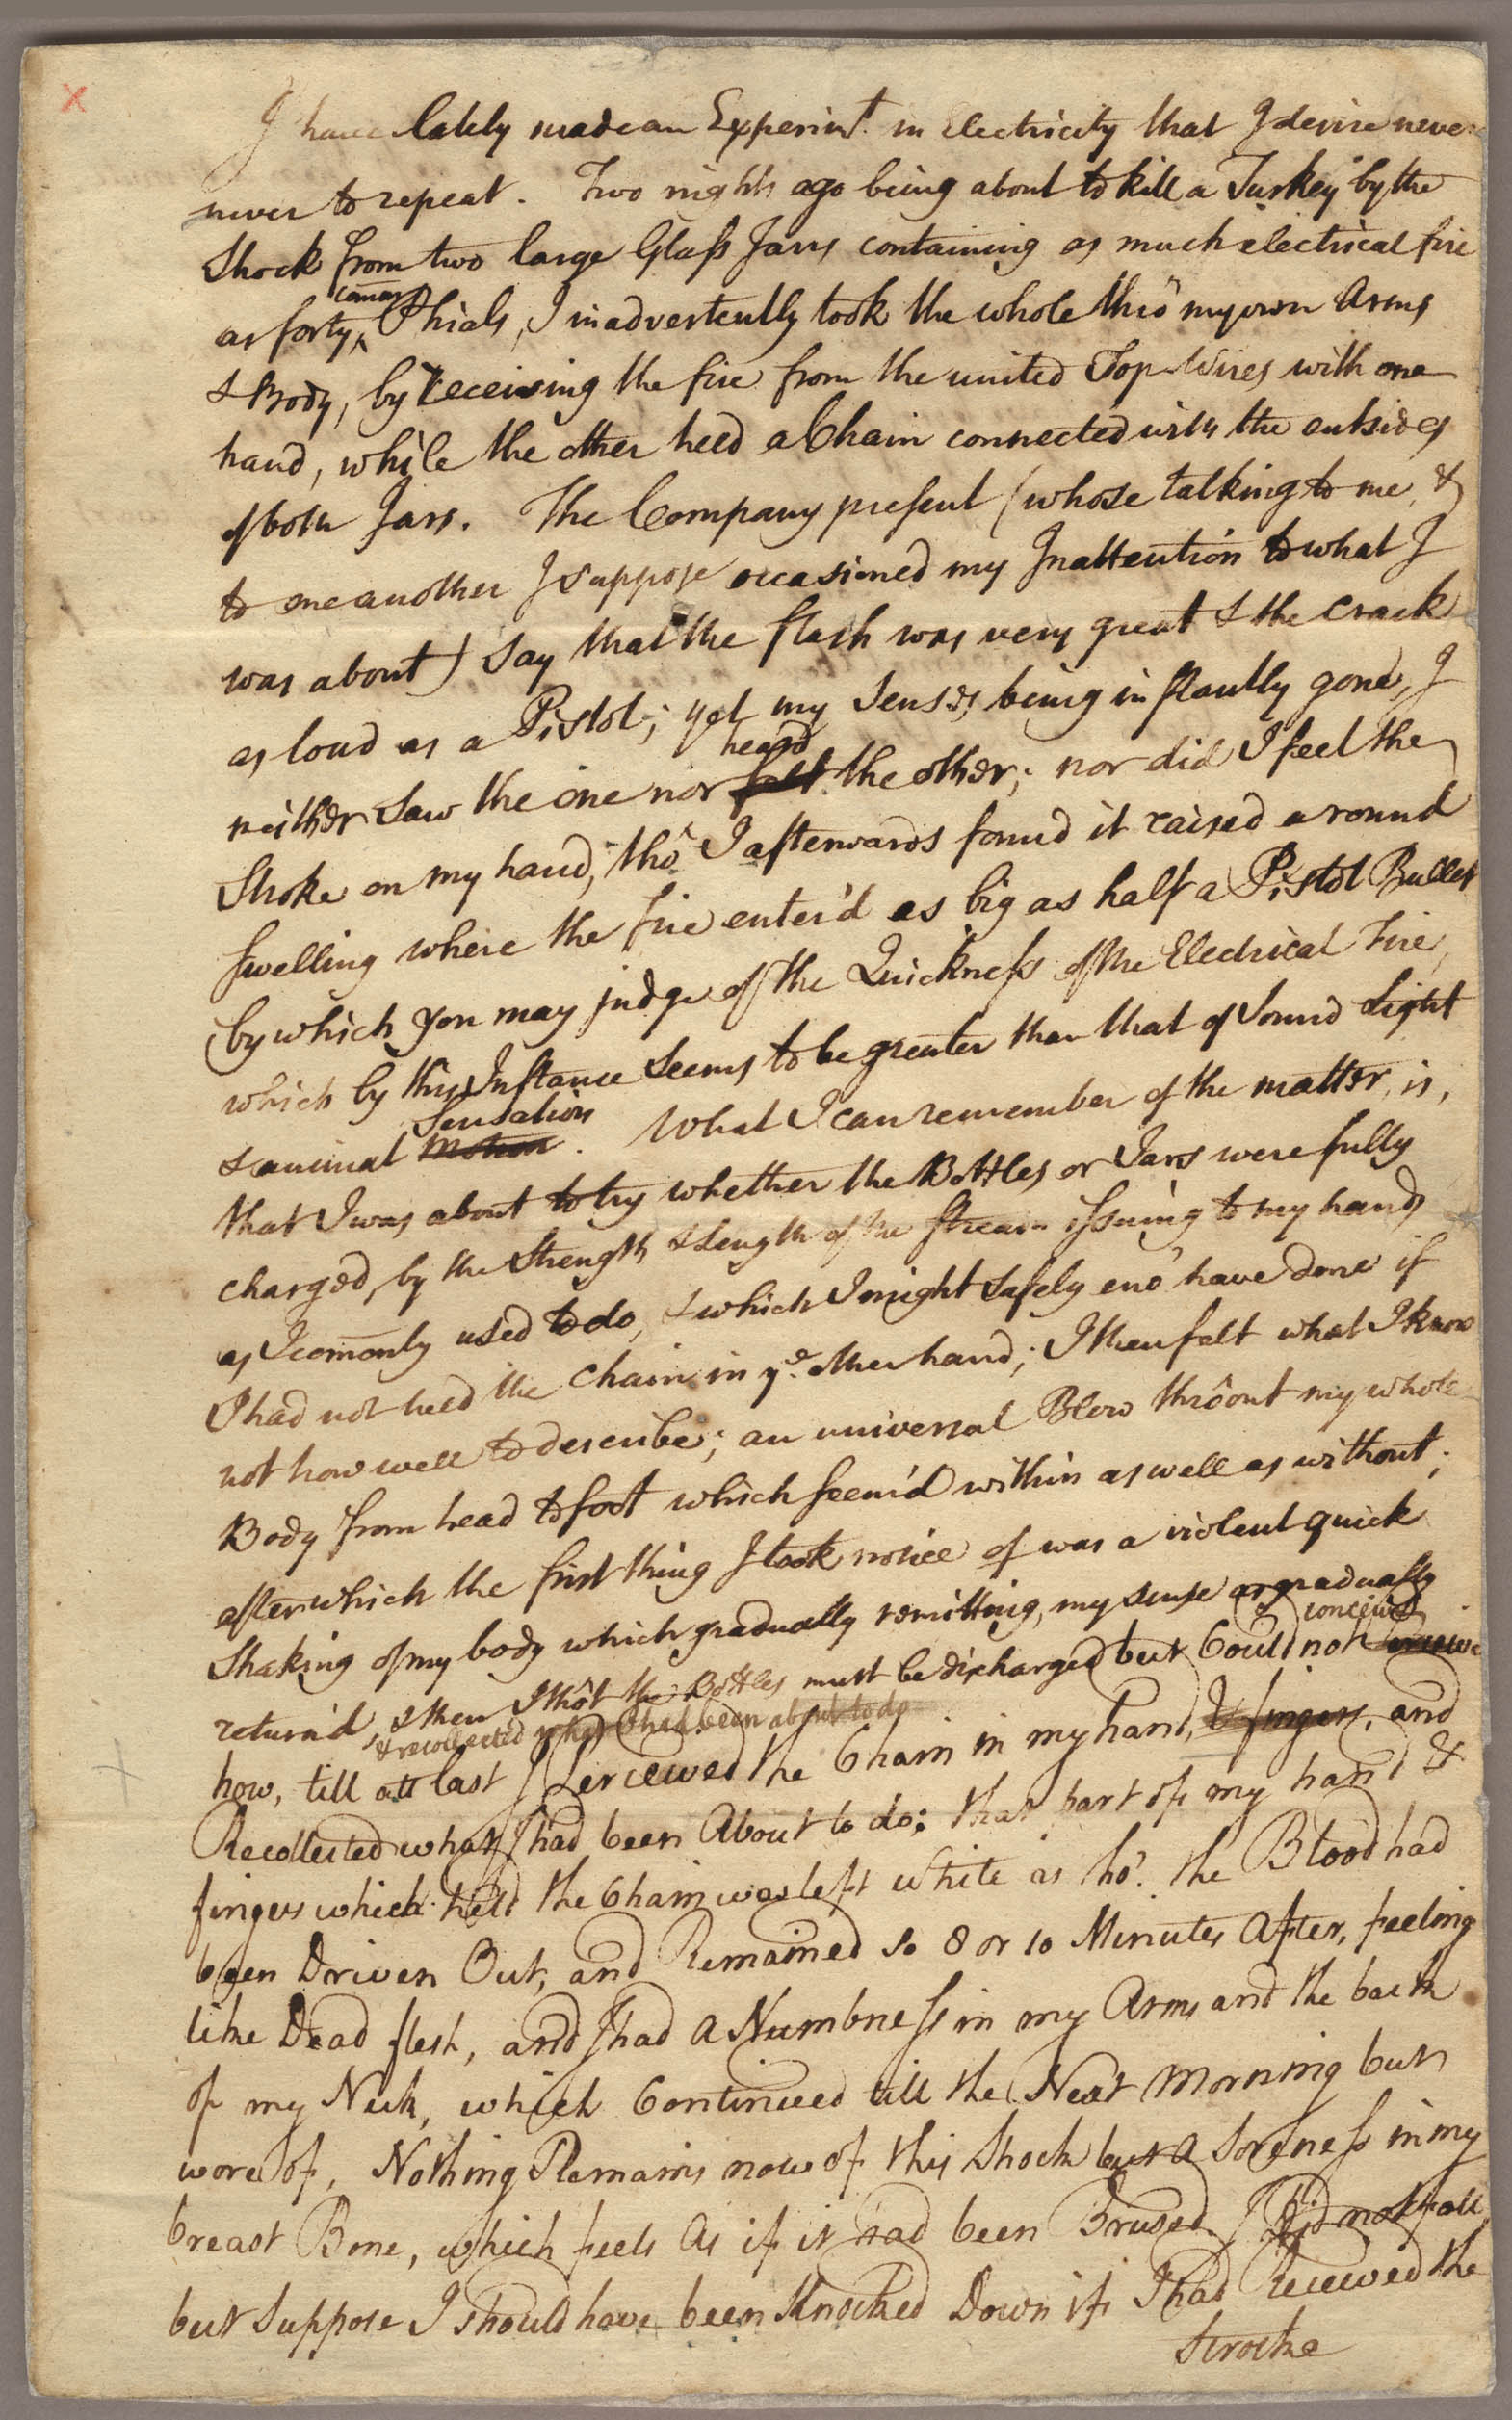 x
I have lately made an Experimt. in Electricity that I desire never
never to repeat. Two nights ago being about to kill a Turkey by the
Shock from two large Glass Jarrs containing as much electrical fire
common
as forty‸ Phials, I inadvertently took the whole thro' my own Arms
& Body, by receiving the fire from the united Top-Wires with one
hand, while the other held a Chain connected with the outsides
of both Jars. The Company present (whose talking to me, &
to one another I suppose occasioned my Inattention to what I
was about) say that the flash was very great & the crack
as loud as a Pistol; yet my Senses being instantly gone, I
heard
neither saw the one nor felt the other; nor did I feel the
Stroke on my hand, tho' I afterwards found it raised a round
swelling where the fire enter'd as big as half a Pistol Bullet
by which you may judge of the Quickness of the Electrical Fire,
which by this Instance seems to be greater than that of Sound Light
Sensation
& animal Motion. What I can remember of the matter, is,
that I was about to try whether the Bottles or Jars were fully
charged, by the Strength & Length of the stream issuing to my hand
as I com̄only used to do, & which I might safely eno' have done if
I had not held the Chain in ye. other hand; I then felt what I know
not how well to describe; an universal Blow thrô'out my whole
Body from head to foot which seem'd within as well as without;
after which the first thing I took notice of was a violent quick
Shaking of my body which gradually remitting, my sense as gradually
conceive
return'd, & then I thôt the Bottles must be discharged but Could not
& recollected what I had been about to do
how, till att last I Perceived the Chain in my hand, & fingers, and
Recollected what I had been About to do: that part of my hand &
fingers which held the Chain was left white as tho' the Blood had
been Driven Out, and Remained so 8 or 10 Minutes After, feeling
like Dead flesh, and I had a Numbness in my Arms and the back
of my Neck, which Continued till the Next Morning but
wore of, Nothing Remains now of this Shock but a Soreness in my
breast Bone, which feels As if it had been Brused. I Did not fall,
but Suppose I should have been Knocked Down if I had Received the
Stroke
x